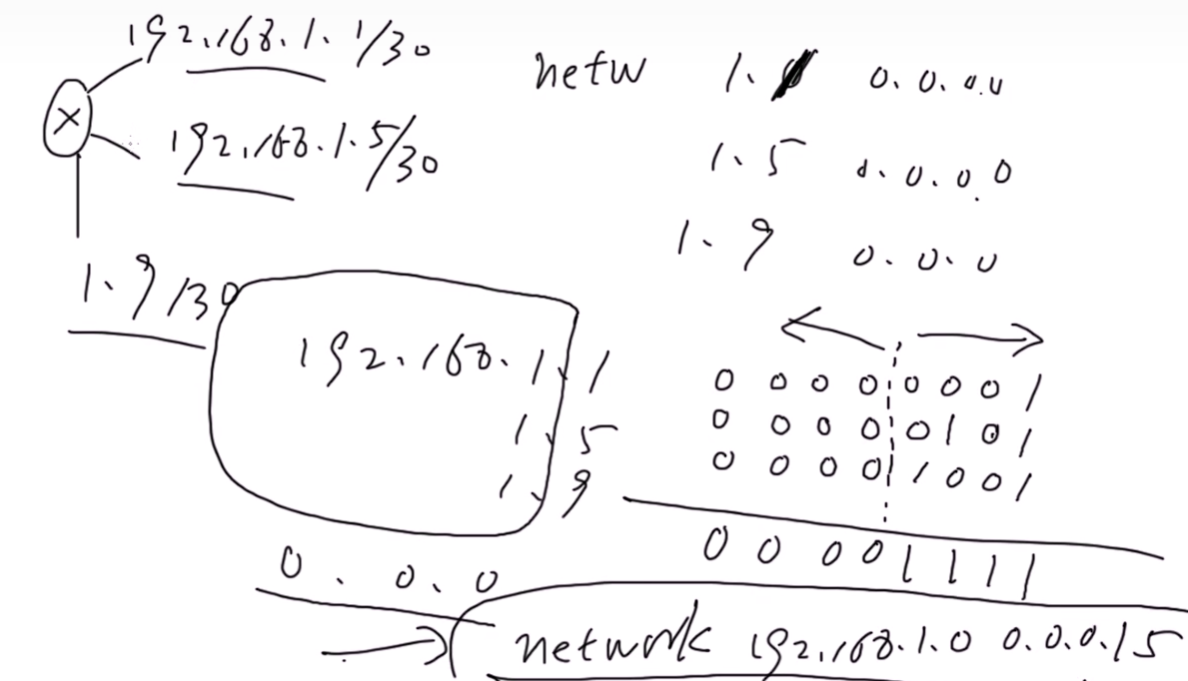 192.168.1.1/30
netw 1. 0.0.0.0
192.168.1.5/30
1.5 0.0.0.0
1.9 0.0.0
1.9/30
192.168.1.1
1.5
1.9
0 0 0 0 0 0 0 1
0 0 0 0 0 1 0 1
0 0 0 0 1 0 0 1
0 0 0 0 1 1 1 1
0.0.0
network 192.168.1.0 0.0.0.15